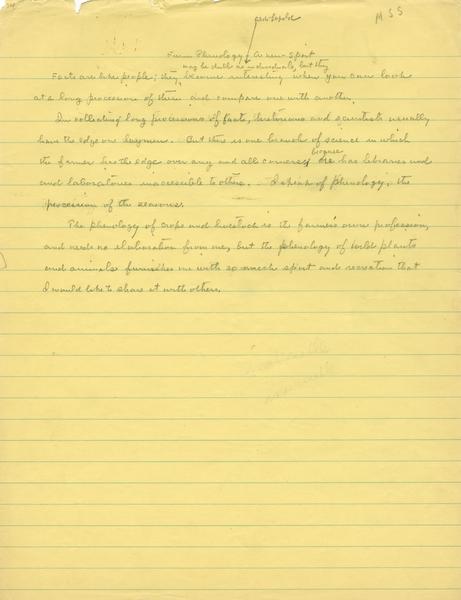 MSS
Farm Phenology - A new Sport
may be dull as individuals, but they
Facts are like people; they become interesting when you can look
at a long procession of them and compare one with another.
In collecting long processions of facts, historians and scientists usually
have the edge on laymen. But there is one branch of science in which
because
the farmer has the edge over any and all comers, he has libraries and
and laboratories inaccessible to others. I speak of phenology, the
procession of the seasons.
The phenology of crops and livestock is the farmer's own profession,
and needs no elaboration from me, but the phenology of wild plants
and animals furnishes me with so much sport and recreation that
I would like to share it with others.